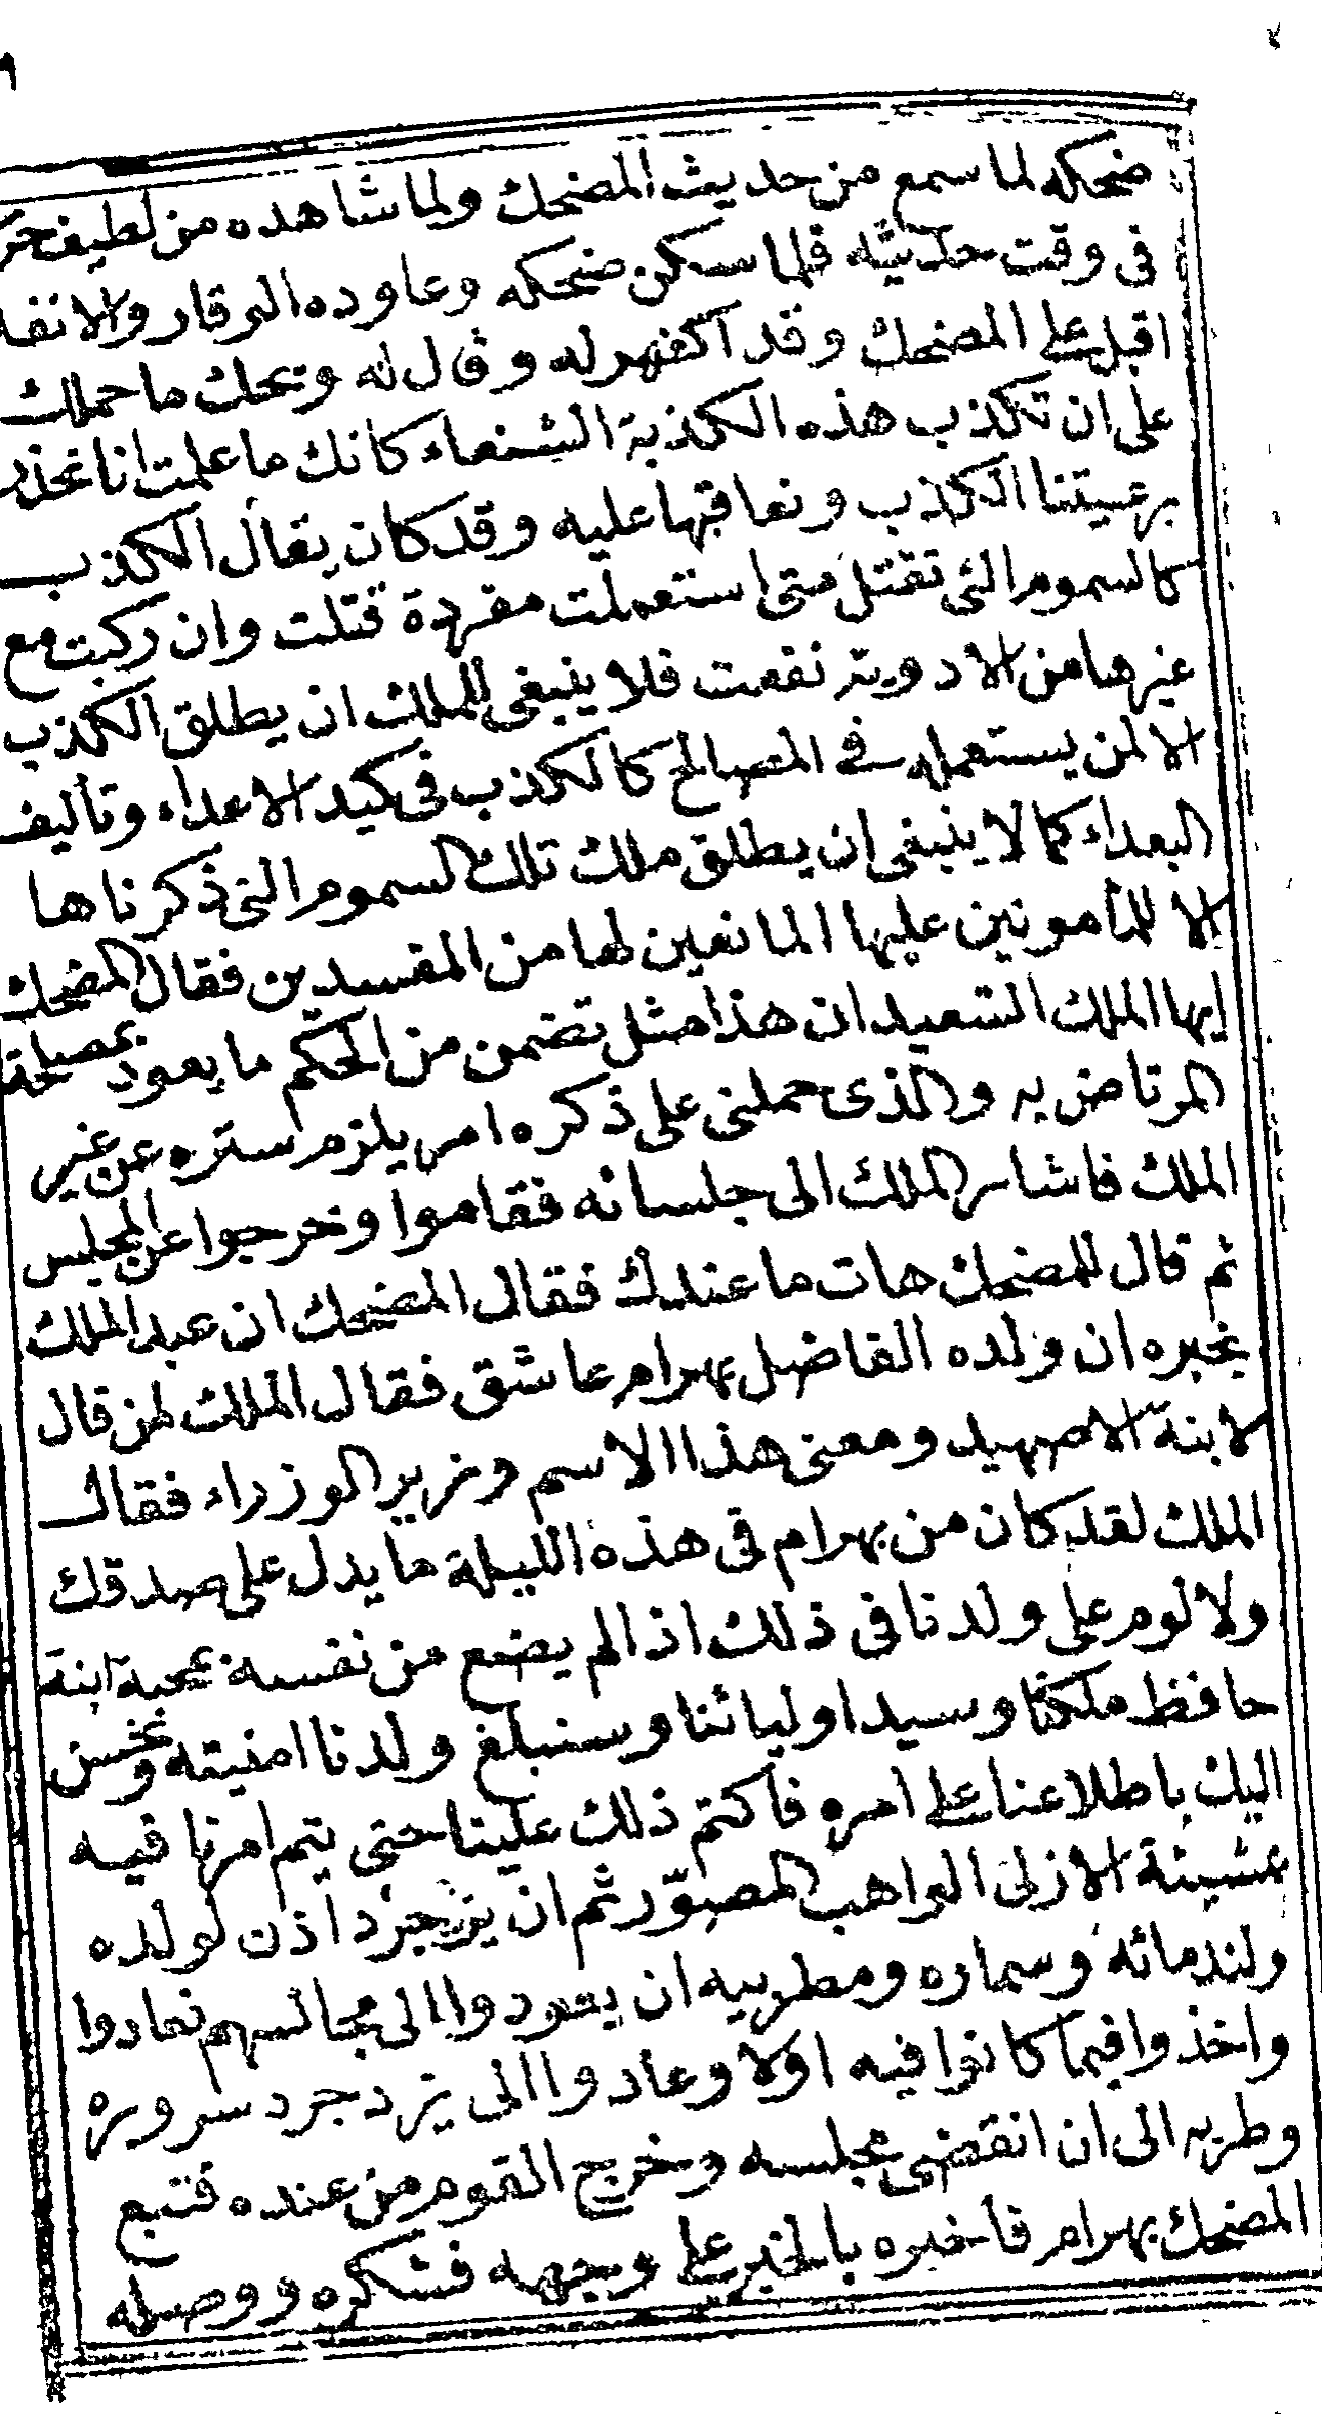 ضحكه لما سمع من حديث المضحك ولما شاهده من لطيف
في وقت حديثه فلما سكن ضحكه وعاوده الوقار والانفة
اقبل على المضحك وقد اكفهر له وقال له ويحك ما حملك
على ان تكذب هذه الكذبة الشنعاء كانك ما علمت انا نحذر
برعيتنا الكذب ونعاقبها عليه وقد كان يقال الكذب
كالسموم التي تقتل متى استعملت مفردة قتلت وان ركبت مع
غيرها من الادوية نفعت فلا ينبغي للملك ان يطلق الكذب
الا لمن يستعمله في المصالح كالكذب في كيد الاعداء وتأليف
البعداء كما لا ينبغي ان يطلق ملك تلك السموم التي ذكرناها
الا للمأمونين عليها المانعين لها من المفسدين فقال المضحك
ايها الملك السعيد ان هذا مثل تضمن من الحكم ما يعود بمصلحة
المرتاض به والذي حملني على ذكره امر يلزم ستره عن غير
الملك فاشار الملك الى جلسائه فقاموا وخرجوا عن المجلس
ثم قال للمضحك هات ما عندك فقال المضحك ان عبد الملك
يخبره ان ولده الفاضل بهرام عاشق فقال الملك لمن قال
لابنة الاصبهيد ومعنى هذا الاسم وزير الوزراء فقال
الملك لقد كان من بهرام في هذه الليلة ما يدل على صدقك
ولا لوم على ولدنا في ذلك اذ لم يضع من نفسه بمحبة ابنة
حافظ ملكنا وسيد اوليائنا وسنبلغ ولدنا امنيته ونحسن
اليك باطلاعنا على امره فاكتم ذلك علينا حتى يتم امرنا فيه
بمشيئة الازلى الواهب المصوّر ثم ان يزدجرد اذن لولده
ولندمائه وسماره ومطربيه ان يعودوا الى مجالسهم فعادوا
واخذوا فيما كانوا فيه اولا وعاد والى يزدجرد سروره
وطربه الى ان انقضى مجلسه وخرج القوم من عنده فتبع
المضحك بهرام فاخبره بالخبر على وجهه فشكره ووصله